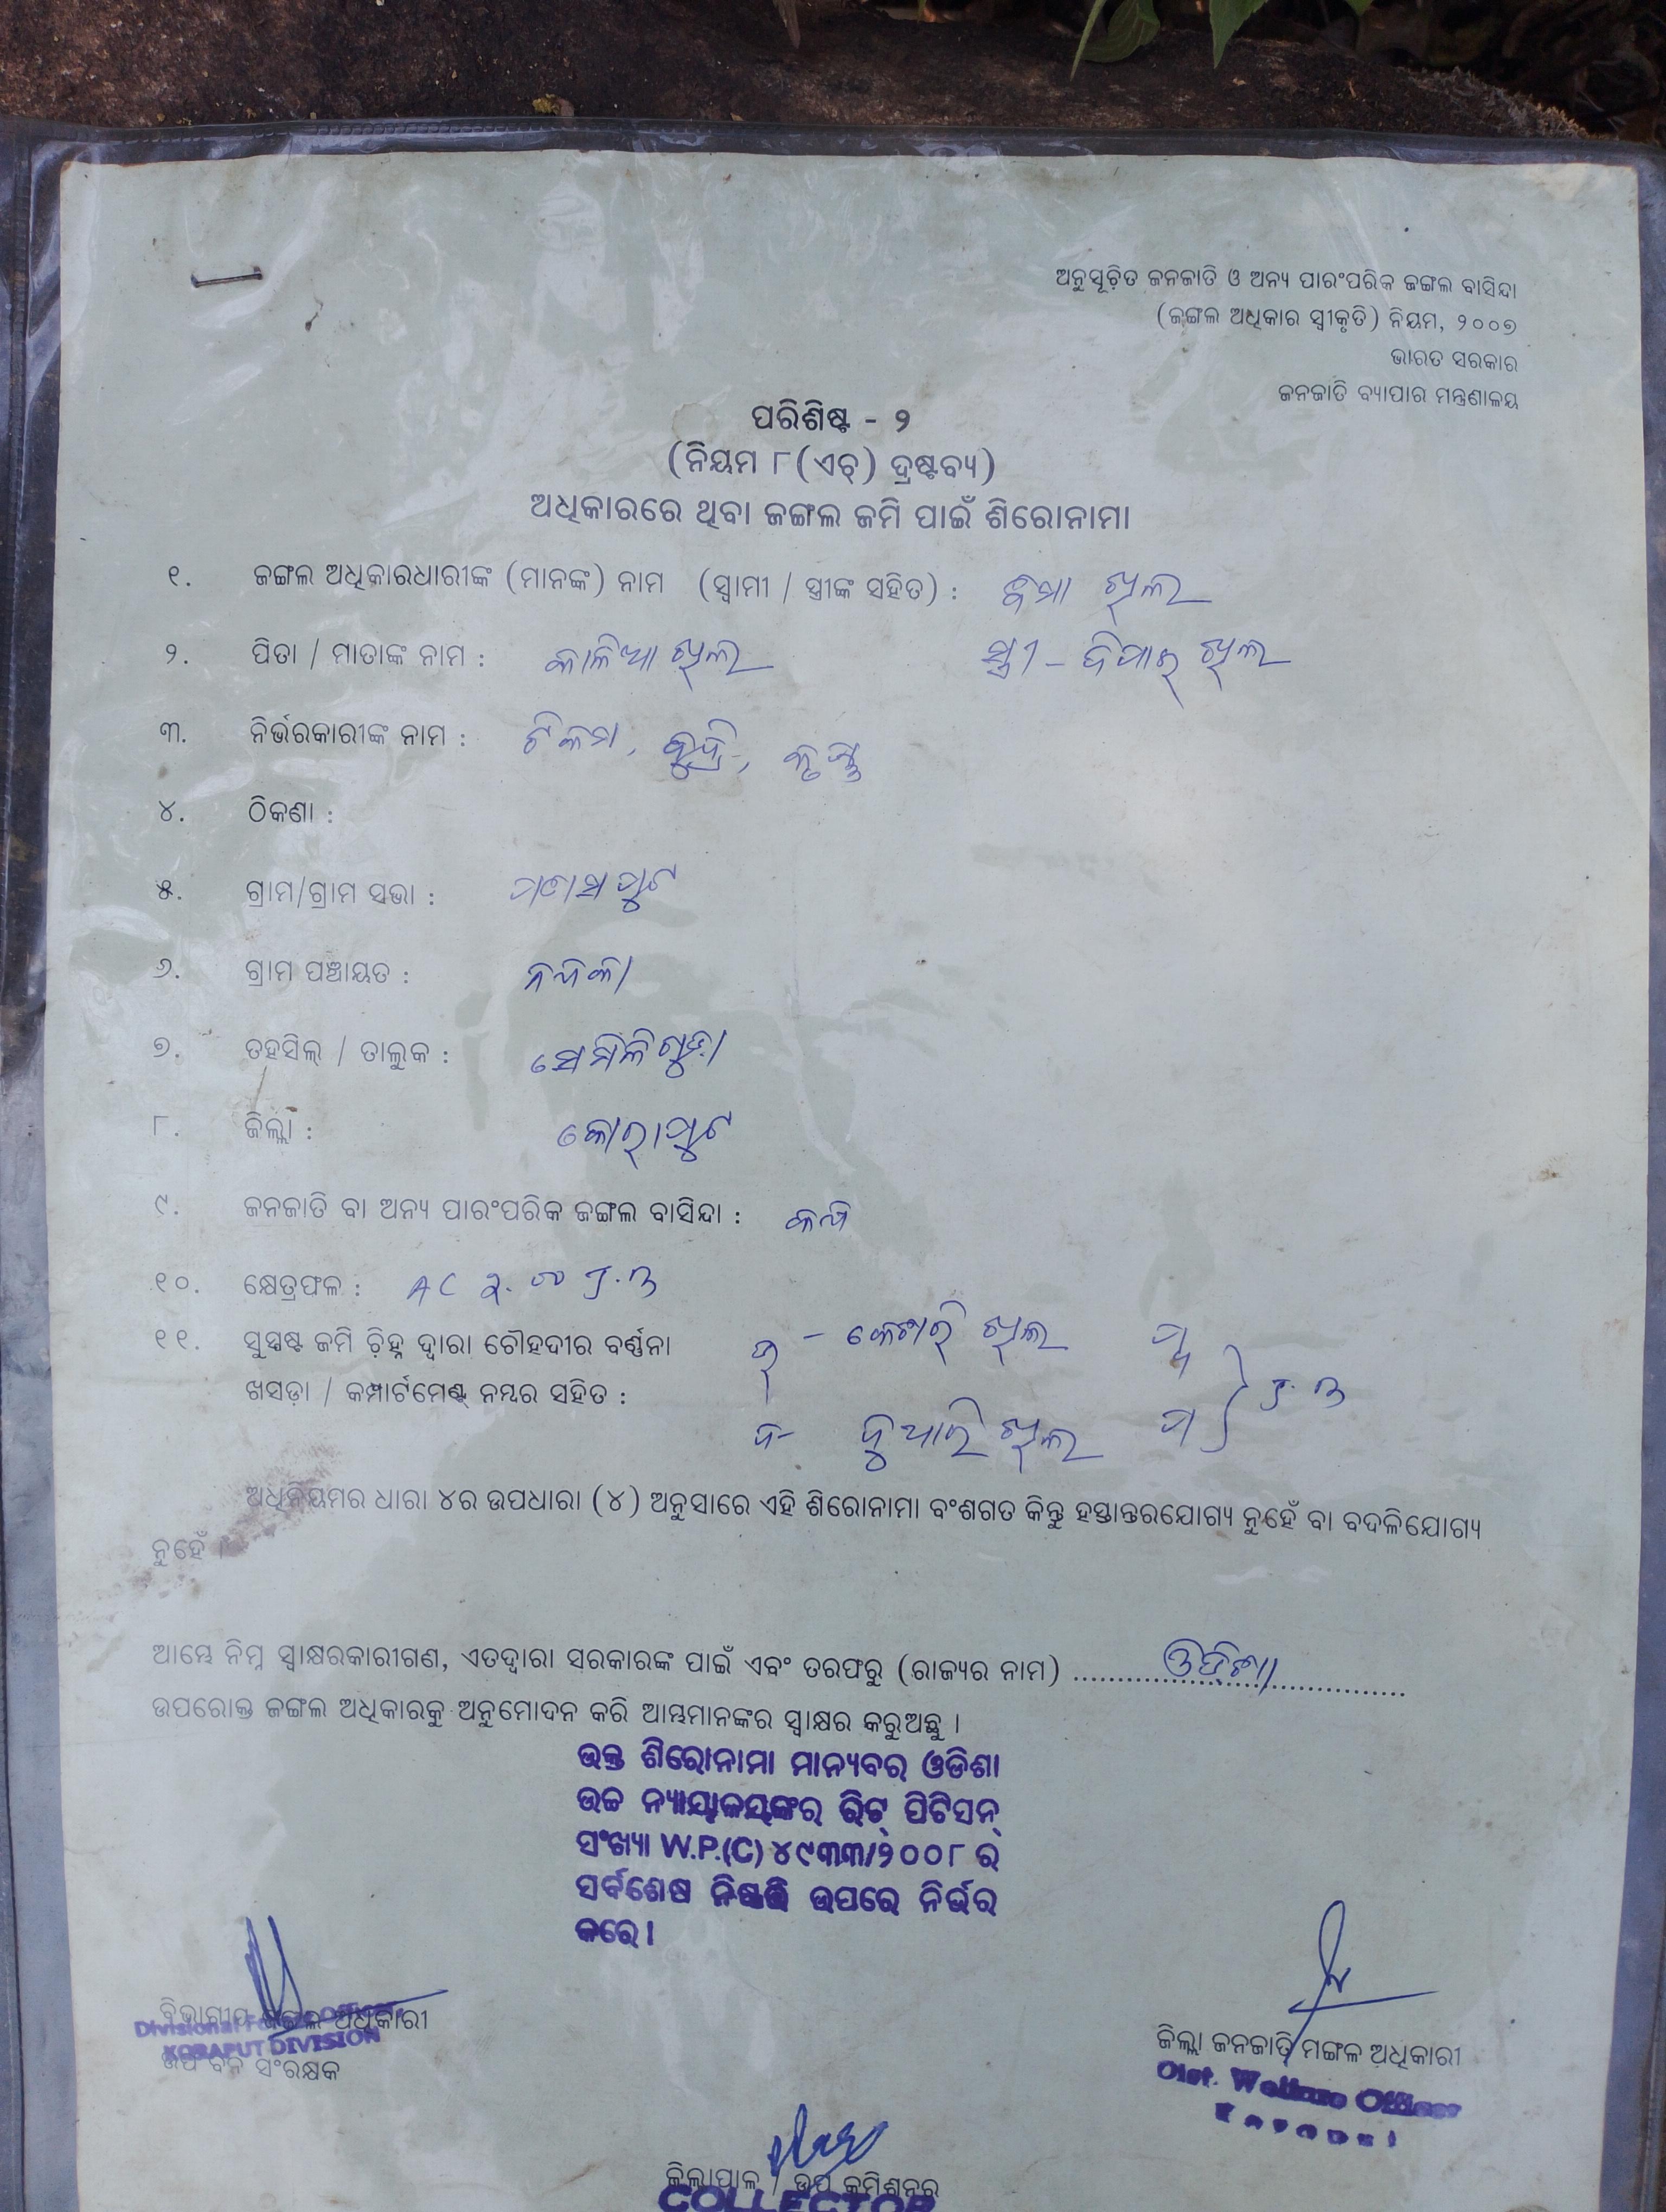 ଅନୁସୂଚିତ ଜନଜାତି ଓ ଅନ୍ୟ ପାରଂପରିକ ଜଙ୍ଗଲ ବାସିନ୍ଦା
(ଜଙ୍ଗଲ ଅଧିକାର ସ୍ୱୀକୃତି) ନିୟମ, ୨୦୦୭
ଭାରତ ସରକାର
ଜନଜାତି ବ୍ୟାପାର ମନ୍ତ୍ରଣାଳୟ
ପରିଶିଷ୍ଟ - ୨
(ନିୟମ ୮(ଏଚ୍) ଦ୍ରଷ୍ଟବ୍ୟ)
ଅଧିକାରରେ ଥିବା ଜଙ୍ଗଲ ଜମି ପାଇଁ ଶିରୋନାମା
୧. ଜଙ୍ଗଲ ଅଧିକାରଧାରୀଙ୍କ (ମାନଙ୍କ) ନାମ (ସ୍ୱାମୀ / ସ୍ତ୍ରୀଙ୍କ ସହିତ) : ଖିଲ
୨. ପିତା / ମାତାଙ୍କ ନାମ : କାଳିଆ ଖିଲ ସ୍ତ୍ରୀ - ଖିଲ
୩. ନିର୍ଭରକାରୀଙ୍କ ନାମ :
୪. ଠିକଣା :
୫. ଗ୍ରାମ/ଗ୍ରାମ ସଭା :
୬. ଗ୍ରାମ ପଞ୍ଚାୟତ :
୭. ତହସିଲ୍ / ତାଲୁକ : ସେମିଳିଗୁଡ଼ା
୮. ଜିଲ୍ଲା : କୋରାପୁଟ
୯. ଜନଜାତି ବା ଅନ୍ୟ ପାରଂପରିକ ଜଙ୍ଗଲ ବାସିନ୍ଦା :
୧୦. କ୍ଷେତ୍ରଫଳ : AC
୧୧. ସୁସ୍ପଷ୍ଟ ଜମି ଚିହ୍ନ ଦ୍ୱାରା ଚୌହଦୀର ବର୍ଣ୍ଣନା
ଖସଡ଼ା / କମ୍ପାର୍ଟମେଣ୍ଟ୍ ନମ୍ବର ସହିତ :
ଅଧିନିୟମର ଧାରା ୪ର ଉପଧାରା (୪) ଅନୁସାରେ ଏହି ଶିରୋନାମା ବଂଶଗତ କିନ୍ତୁ ହସ୍ତାନ୍ତରଯୋଗ୍ୟ ନୁହେଁ ବା ବଦଳିଯୋଗ୍ୟ
ନୁହେଁ ।
ଆମ୍ଭେ ନିମ୍ନ ସ୍ୱାକ୍ଷରକାରୀଗଣ, ଏତଦ୍ୱାରା ସରକାରଙ୍କ ପାଇଁ ଏବଂ ତରଫରୁ (ରାଜ୍ୟର ନାମ) ଓଡ଼ିଶା
ଉପରୋକ୍ତ ଜଙ୍ଗଲ ଅଧିକାରକୁ ଅନୁମୋଦନ କରି ଆମ୍ଭମାନଙ୍କର ସ୍ୱାକ୍ଷର କରୁଅଛୁ ।
ଉକ୍ତ ଶିରୋନାମା ମାନ୍ୟବର ଓଡିଶା
ଉଚ୍ଚ ନ୍ୟାୟାଳୟଙ୍କର ରିଟ୍ ପିଟିସନ୍
ସଂଖ୍ୟା W.P.(C) ୪୯୩୩/୨୦୦୮ ର
ସର୍ବଶେଷ ନିଷ୍ପତ୍ତି ଉପରେ ନିର୍ଭର
କରେ।
ବିଭାଗୀୟ ଜଙ୍ଗଲ ଅଧିକାରୀ
Divisional Forest Officer
KORAPUT DIVISION
ଉପ ବନ ସଂରକ୍ଷକ
ଜିଲ୍ଲା ଜନଜାତି ମଙ୍ଗଳ ଅଧିକାରୀ
Dist. Welfare Officer
ଜିଲ୍ଲାପାଳ / ଉପ କମିଶନର
COLLECTOR